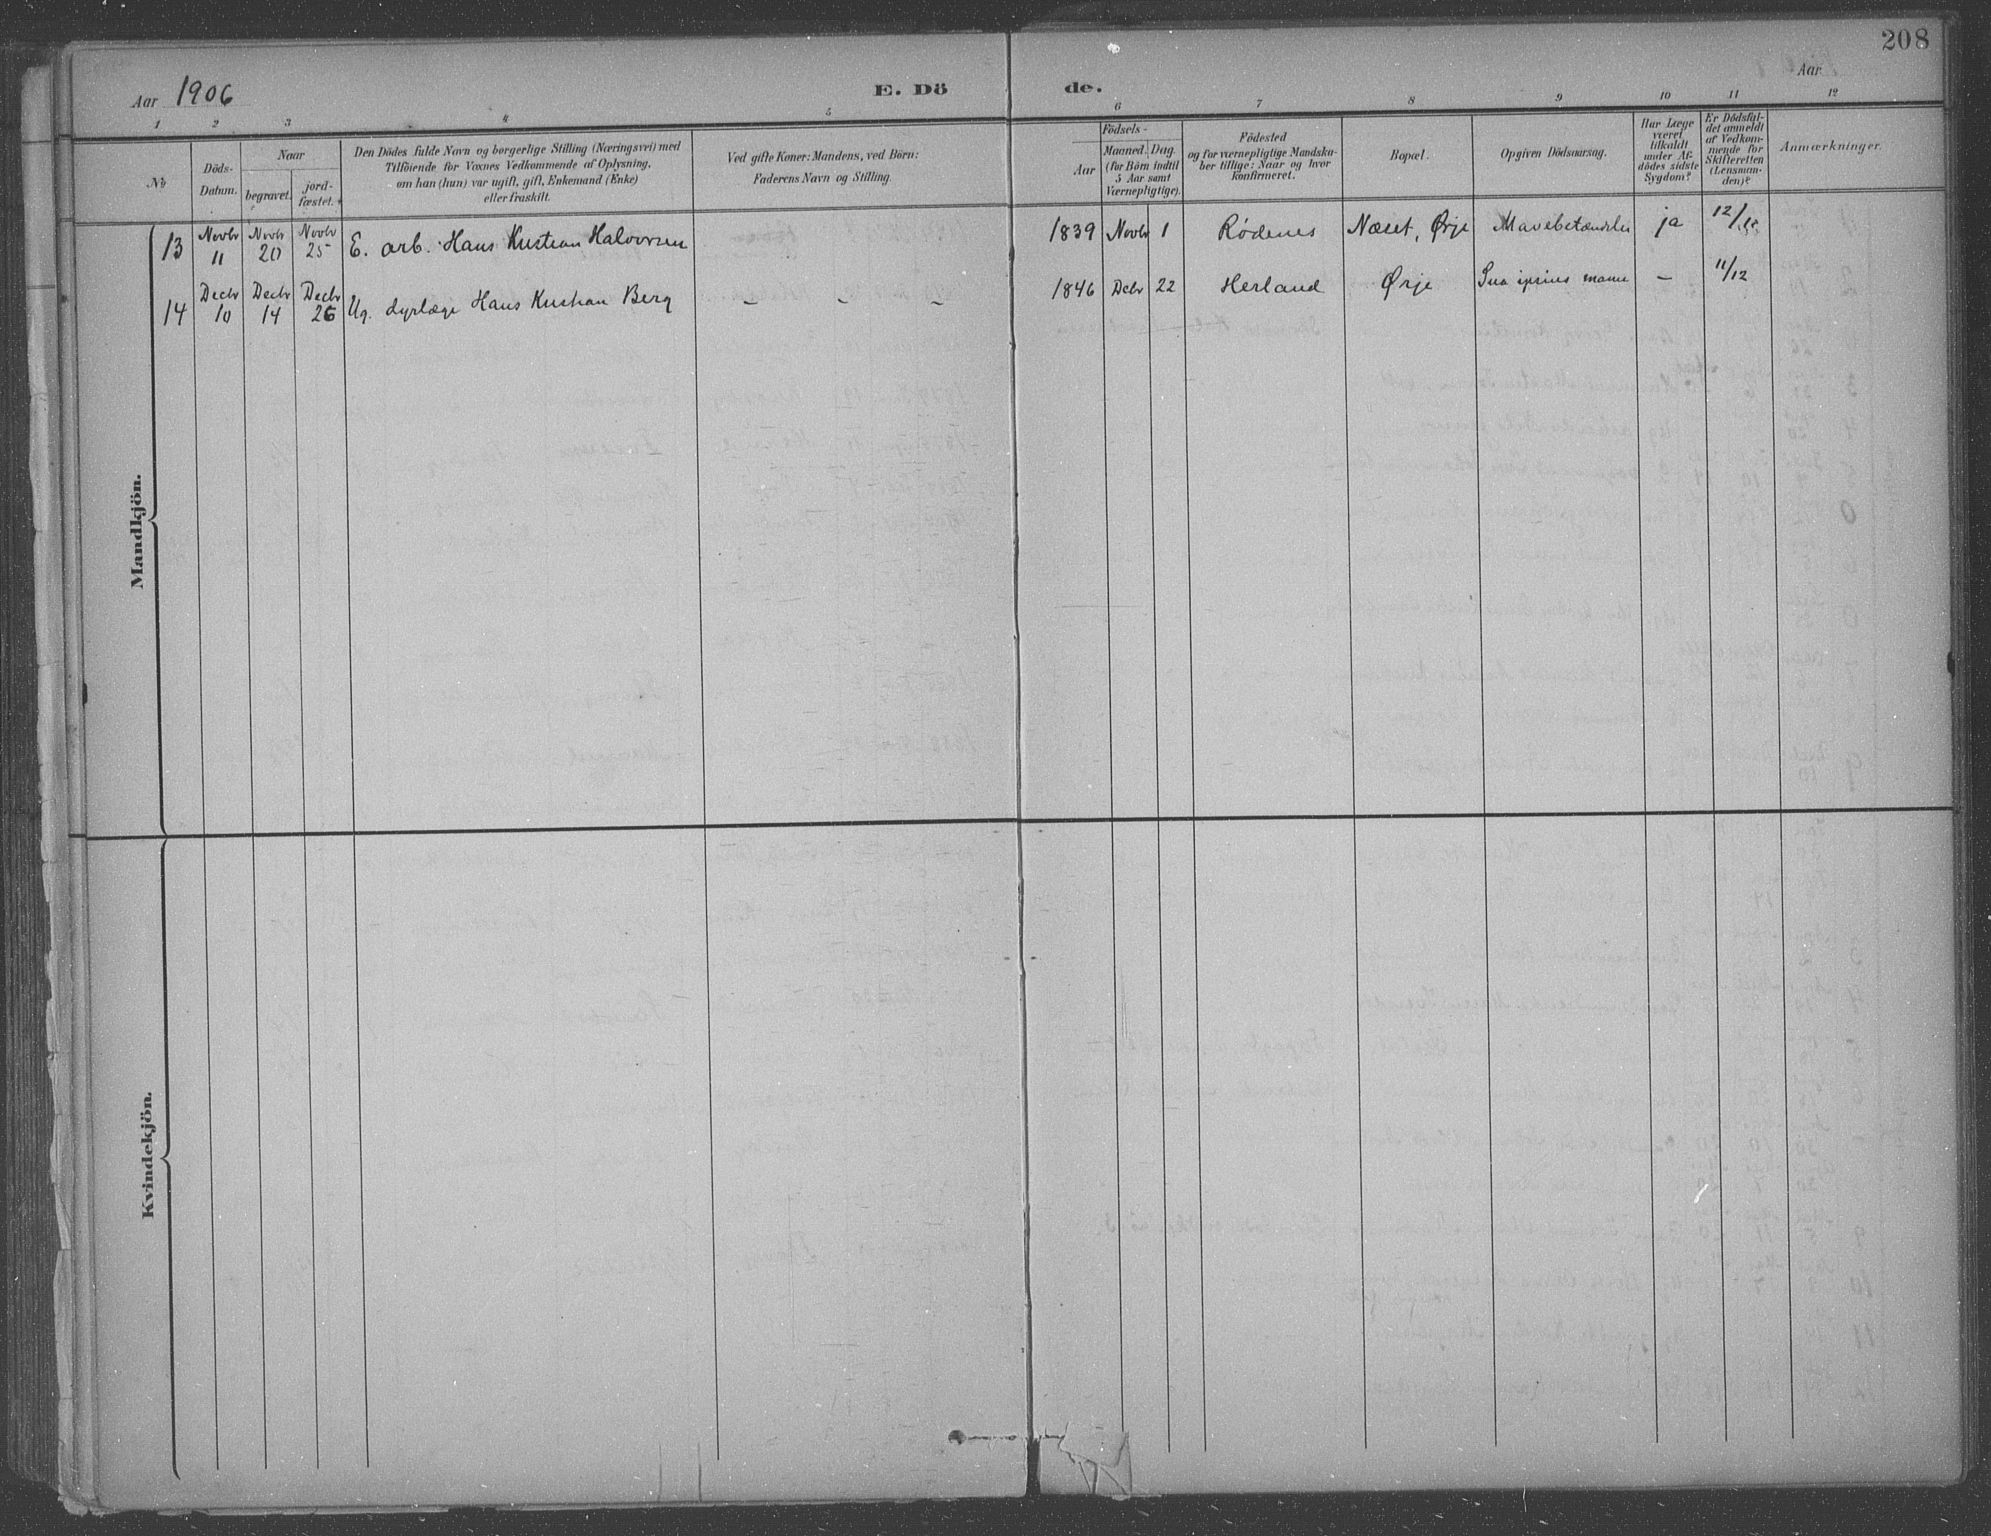 208
Aar 1906
E. Dö de.
Aar
1 2 3 4 5 6 7 8 9 10 11 12
No
Döds-Datum.
Naar
begravet.
jord-fæstet.
Den Dödes fulde Navn og borgerlige Stilling (Næringsvei) med
Tilföiende for Voxnes Vedkommende af Oplysning,
om han (hun) var ugift, gift, Enkemand (Enke)
eller fraskilt.
Ved gifte Koner: Mandens, ved Börn:
Faderens Navn og Stilling.
Födsels-
Aar
Maaned. Dag.
(for Börn indtil
5 Aar samt
Værnepligtige).
Födested
og for værnepligtige Mandska-
ber tillige: Naar og hvor
konfirmeret.
Bopæl.
Opgiven Dödsaarsag.
Har Læge
været
tilkaldt
under Af-
dödes sidste
Sygdom?
Er Dödsfal-
det anmeldt
af Vedkom-
mende for
Skifteretten
(Lensman-
den)?
Anmærkninger.
Mandkjön.
13 Novbr 11 Novbr 20 Novbr 25 E. arb. Hans Kristian Halvorsen 1839 Novbr 1 Rødenes Næset, Ørje Mavebetændelse ja 12/
14 Decbr 10 Decbr 14 Decbr 26 Ug. dyrlæge Hans Kristian Berg – – – 1846 Dcbr 22 Herland Ørje Sua ipsius manu – 11/12
Kvindekjön.